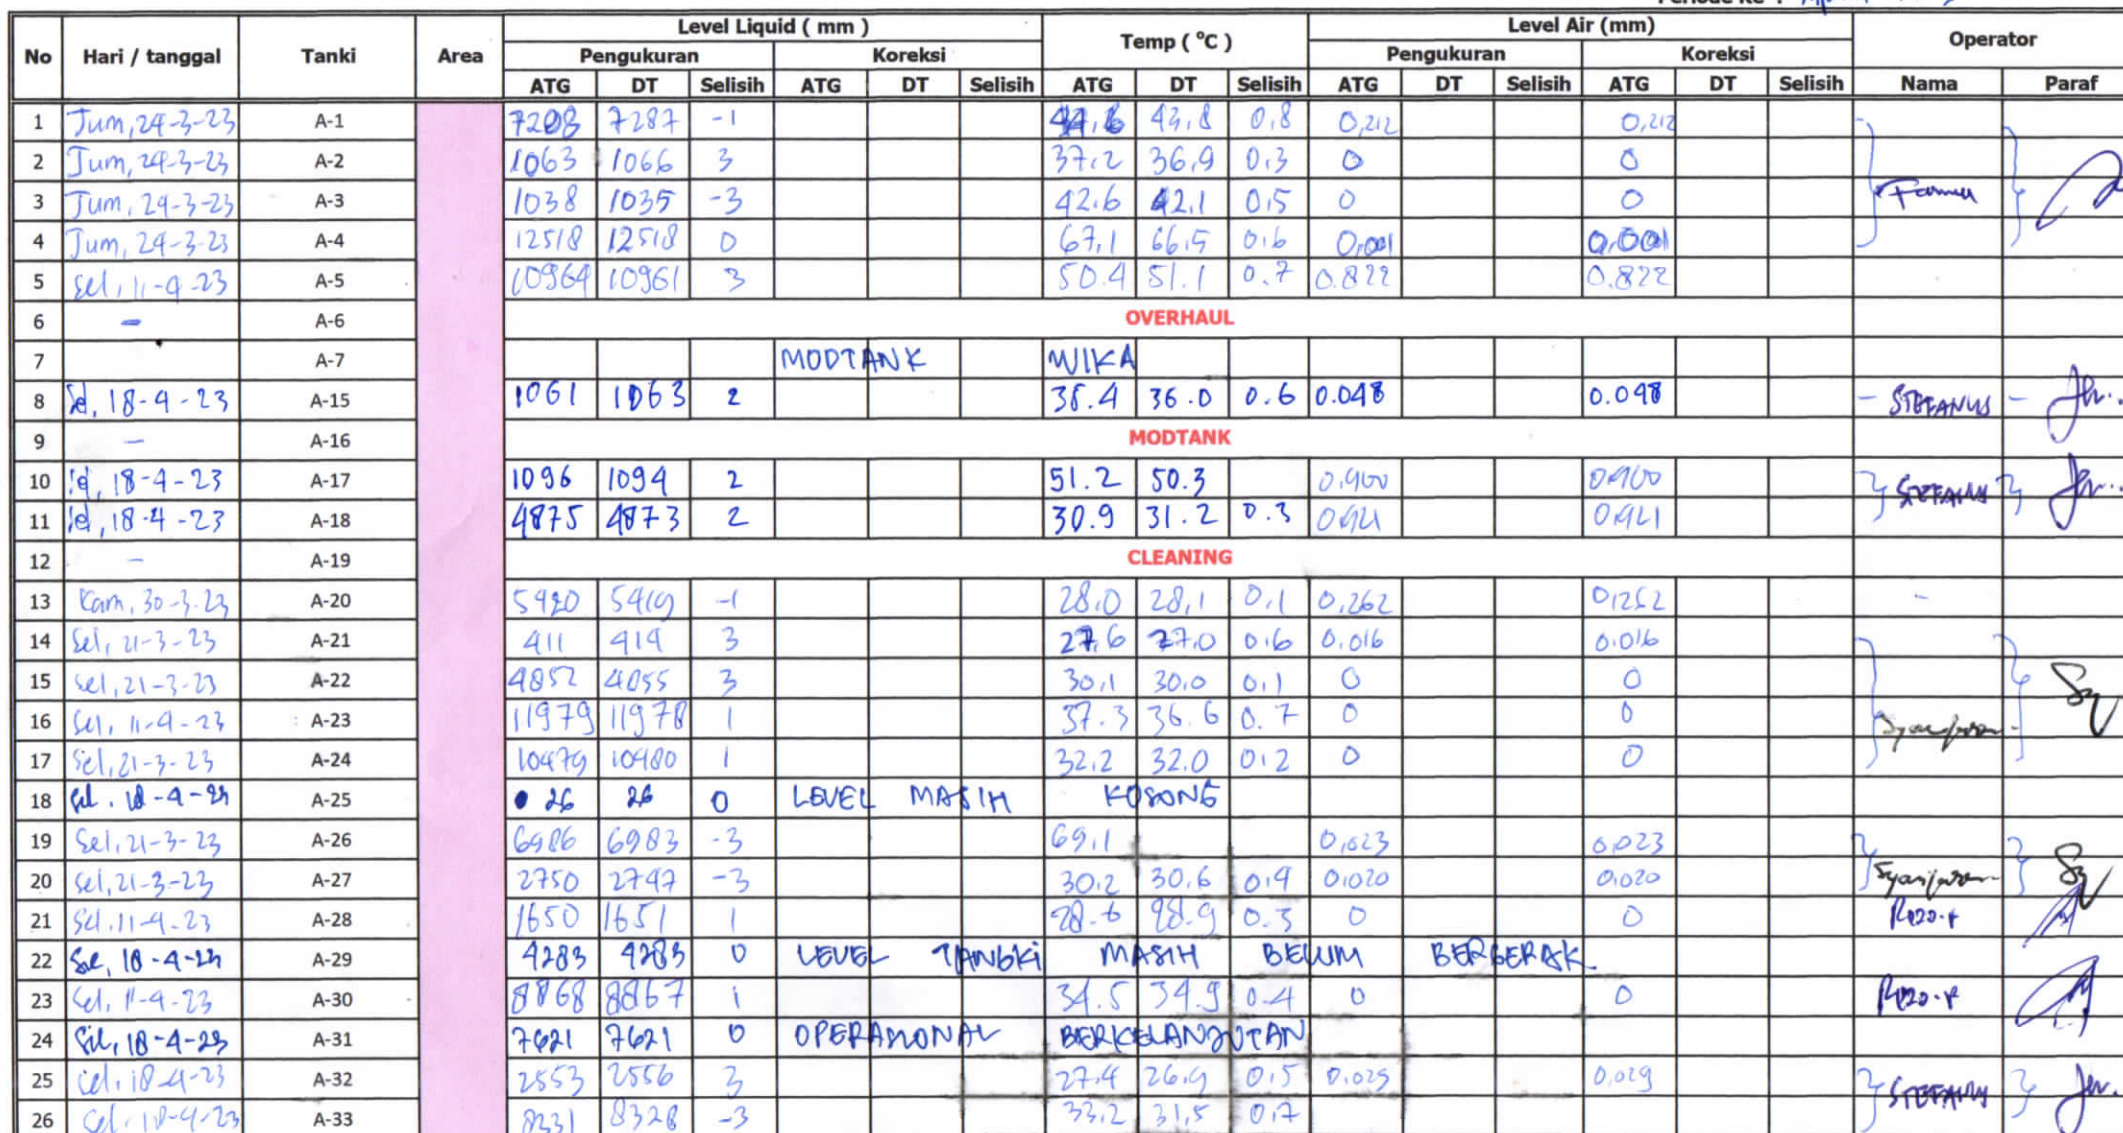 Level Liquid ( mm ) Level Air (mm)
No Hari / tanggal Tanki Area Pengukuran Koreksi Temp ( °C ) Pengukuran Koreksi Operator
ATG DT Selisih ATG DT Selisih ATG DT Selisih ATG DT Selisih ATG DT Selisih Nama Paraf
1 Jum, 24-3-23 A-1 7287 -1 43,8 0,8 0,212 0,212
2 Jum, 24-3-23 A-2 1063 1066 3 37,2 36,9 0,3 0 0
3 Jum, 24-3-23 A-3 1038 1035 -3 42.6 42.1 0.5 0 0
4 Jum, 24-3-23 A-4 12518 12518 0 67,1 66,5 0,6 0,001 0,001
5 Sel, 11-4-23 A-5 10964 10961 3 50.4 51.1 0.7 0.822 0.822
6 - A-6 OVERHAUL
7 A-7 MODTANK WIKA
8 Sel, 18-4-23 A-15 1061 1063 2 36.0 0.6 0.048 0.048 - STEFANUS -
9 - A-16 MODTANK
10 Sel, 18-4-23 A-17 1096 1094 2 51.2 50.3 0.400 0.400 STEFANUS
11 Sel, 18-4-23 A-18 4875 4873 2 30.9 31.2 0.3 0.421 0.421
12 - A-19 CLEANING
13 Kam, 30-3-23 A-20 5420 5419 -1 28.0 28,1 0,1 0,262 -
14 Sel, 21-3-23 A-21 411 414 3 27,6 27,0 0,6 0,016 0.016
15 Sel, 21-3-23 A-22 4052 4055 3 30,1 30.0 0,1 0 0
16 Sel, 11-4-23 A-23 11979 11978 1 37.3 36.6 0.7 0 0
17 Sel, 21-3-23 A-24 10479 10480 1 32,2 32.0 0,2 0 0
18 Sel, 18-4-23 A-25 26 26 0 LEVEL MASIH KOSONG
19 Sel, 21-3-23 A-26 6986 6983 -3 69,1 0,023 0,023
20 Sel, 21-3-23 A-27 2750 2747 -3 30,2 30,6 0,4 0,020 0,020
21 Sel, 11-4-23 A-28 1650 1651 1 28.6 28.9 0.3 0 0
22 Sel, 18-4-23 A-29 4283 4283 0 LEVEL TANGKI MASIH BELUM BERGERAK
23 Sel, 11-4-23 A-30 8868 8867 1 34.5 34.9 0.4 0 0
24 Sel, 18-4-23 A-31 7621 7621 0 OPERASIONAL BERKELANJUTAN
25 Sel, 18-4-23 A-32 2553 2556 3 27,4 26,9 0,5 0,029 0,029 STEFANUS
26 Sel, 18-4-23 A-33 8331 8328 -3 33,2 31,5 0,7